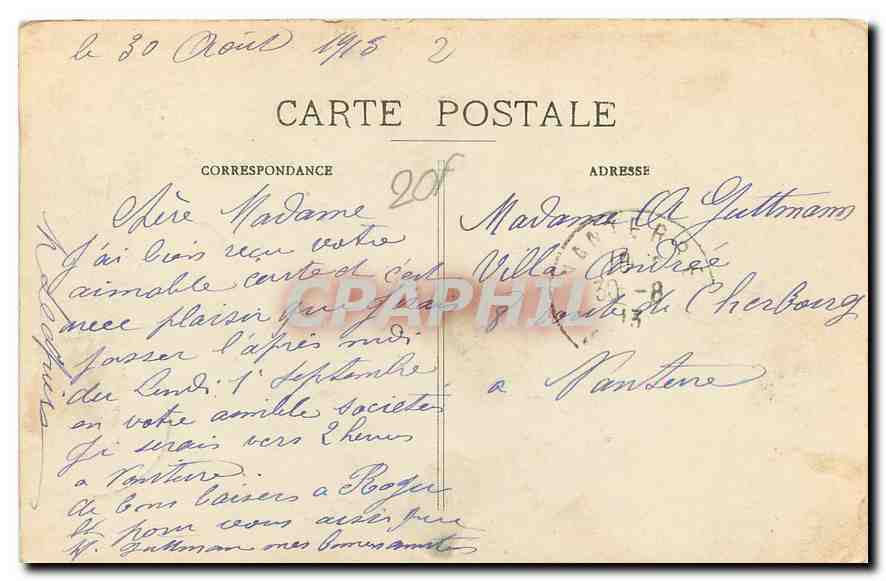 le 30 Août 1913 2
CARTE POSTALE
CORRESPONDANCE
ADRESSE
20f
Chère Madame
J'ai bien reçu votre
aimable carte et c'est
avec plaisir que j'irais
passer l'après midi
du Lundi 1 Septembre
en votre aimable societée
Ji serais vers 2 heures
a Nanterre.
de bons baisers a Roger
et pour vous ainsi que
M. Guttmann mes
Madame A Guttmann
Villa Andrée
8 route de Cherbourg
a Nanterre
NANTERRE
30 -8
13
CPAPHIL